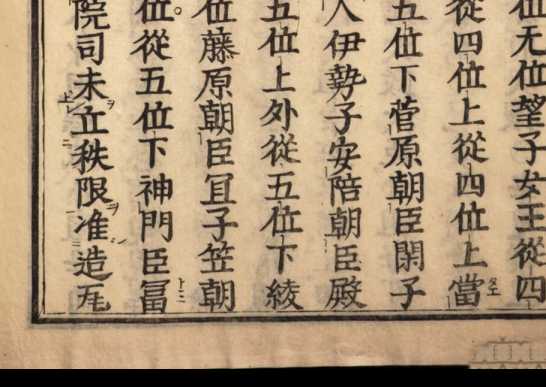 位无位望子女王從四
從四位上從四位上當
五位下菅原朝臣閑子
人伊勢子安陪朝臣殿
五位上外從五位下綾
位藤原朝臣冝子笠朝
位。從五位下神門臣冨
院司未立秩限准造瓦